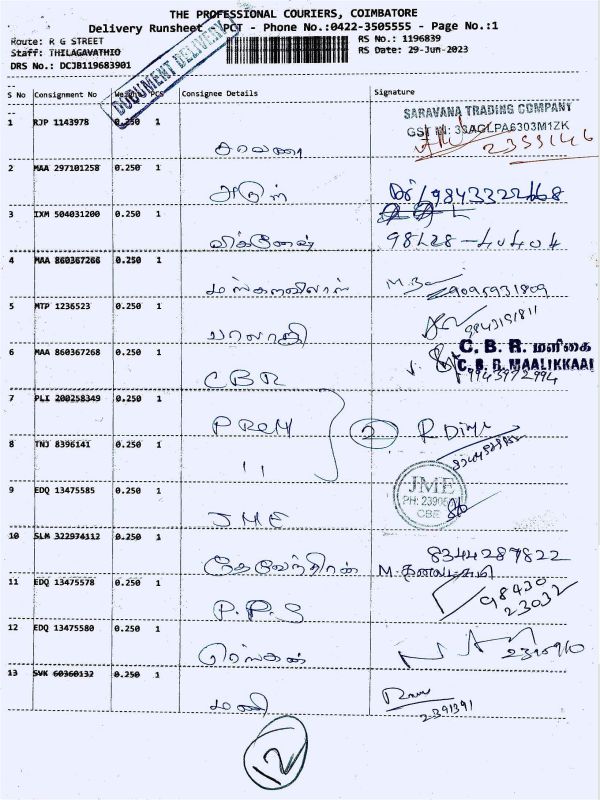 THE PROFESSIONAL COURIERS, COIMBATORE
Delivery Runsheet - PCT - Phone No.:0422-3505555 - Page No.:1
Route: R G STREET
RS No.: 1196839
Staff: THILAGAVATHIO
RS Date: 29-Jun-2023
DRS No.: DCJB119683901
DOCUMENT DELIVERY
S No Consignment No Weight PCS Consignee Details Signature
SARAVANA TRADING COMPANY
GST IN: 33AGLPA6303M1ZK
1 RJP 1143978 0.250 1
2 MAA 297101258 0.250 1
அருள்
3 IXM 504031200 0.250 1
விக்னேஷ் 98428-40404
4 MAA 860367266 0.250 1
5 MTP 1236523 0.250 1
பாலாஜி 9843151811
6 MAA 860367268 0.250 1
C.B.R. மளிகை
C.B.R. MAALIKKAAI
CBR
7 PLI 200258349 0.250 1
PREM 2
8 TNJ 8396141 0.250 1
11
9 EDQ 13475585 0.250 1
JME
PH: 2390
CBE
JME
10 SLM 322974112 0.250 1
தேவேந்திரன் 8344287822
11 EDQ 13475578 0.250 1
98430
23032
P.P.S
12 EDQ 13475580 0.250 1
13 SVK 60360132 0.250 1
மணி 2391391
12